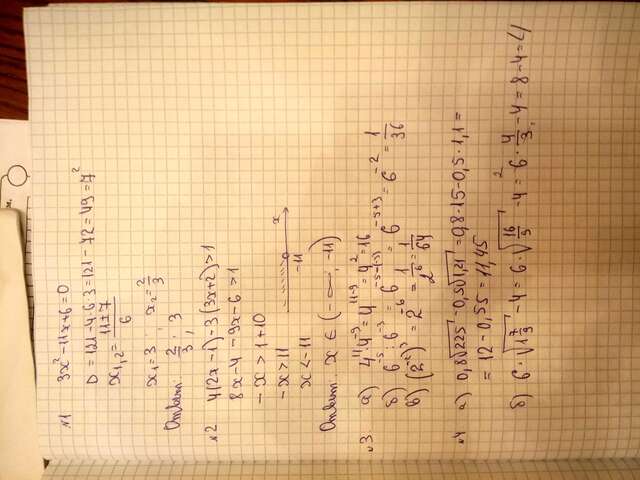 №1 3x²-11x+6=0
D=121-4·6·3=121-72=49=7²
x₁,₂=\frac{11±7}{6}
x₁=3 ; x₂=\frac{2}{3}
Ответ: \frac{2}{3} ; 3
№2 4(2x-1)-3(3x+2)>1
8x-4-9x-6>1
-x>1+10
-x>11
x<-11
-11 x
Ответ: x∈(-∞;-11)
№3 а) 4¹¹·4⁻⁹=4¹¹⁻⁹=4²=16
б) 6⁻⁵:6⁻³=6⁻⁵⁻⁽⁻³⁾=6⁻⁵⁺³=6⁻²=\frac{1}{36}
в) (2⁻²)³=2⁻⁶=\frac{1}{2⁶}=\frac{1}{64}
№4 а) 0,8√225-0,5√1,21=0,8·15-0,5·1,1=
=12-0,55=11,45
б) 6·√(1\frac{7}{9})-4=6·√(\frac{16}{9})-4=6·\frac{4}{3}-4=8-4=4